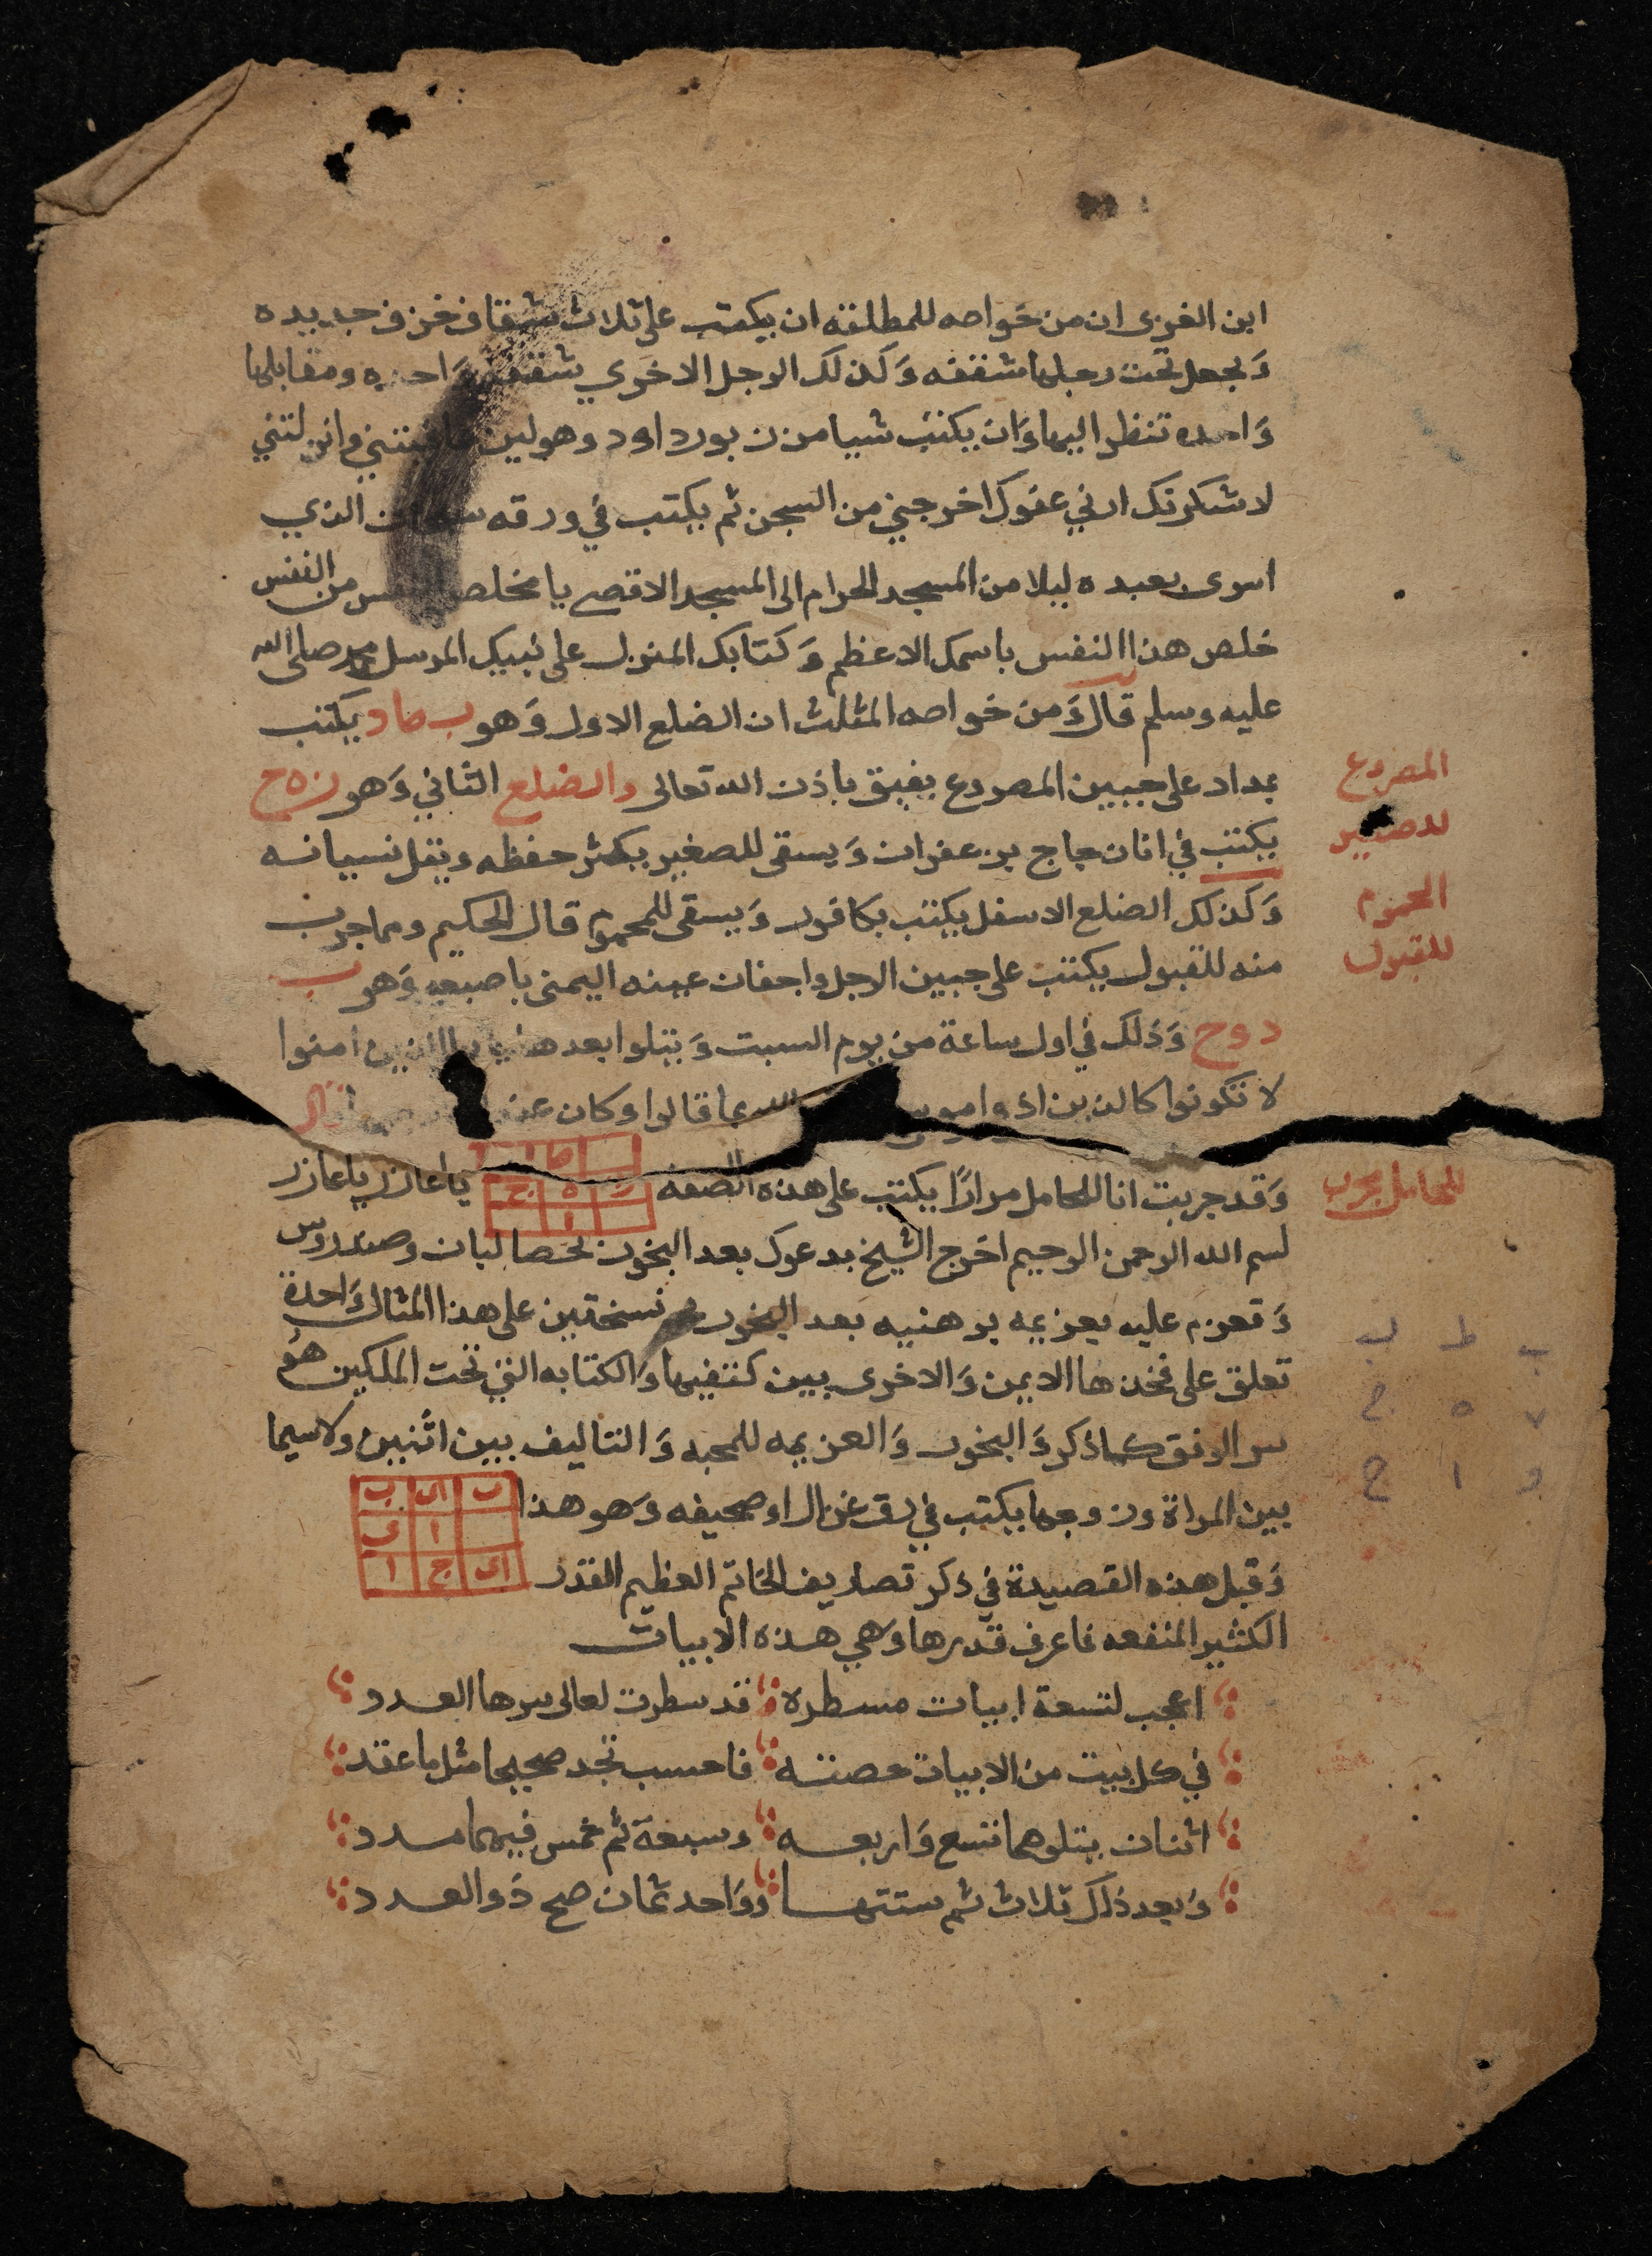 ابن الغزى ان من خواصه للمطلقه ان يكتب على ثلاث شقاف خزف جديده
وَيجعل تحت رجلها شقفه وَكذلك الرجل الاخري شقفه وَاحده ومقابلها
وَاحده تنظر اليها وَان يكتب شيا من زبور داود وهو لين عافيتني وانزلتني
لاشكرنك ارني عفوك اخرجني من السجن ثم يكتب في ورقه سبحان الذي
اسرى بعبده ليلا من المسجد الحرام الى المسجد الاقصى يا مخلص النفس من النفس
خلص هذا النفس باسمك الاعظم وَكتابك المنزل على نبيك المرسل محمد صلى الله
عليه وسلم قال وَمن خواصه المثلث ان الضلع الاول وَهو ب ط د يكتب
بمداد على جبين المصروع يفيق باذن الله تعالى والضلع الثاني وَهو ز ه ج
المصروع
يكتب في انا زجاج بزعفران وَيسقى للصغير يكثر حفظه ويقل نسيانه
للصغير
وَكذلك الضلع الاسفل يكتب بكافور وَيسقى للمحموم قال الحكيم ومما جرب
المحموم
منه للقبول يكتب على جبين الرجل واجفان عينه اليمنى باصبعه وَهو ب
للقبول
د و ح وَذلك في اول ساعة من يوم السبت وَيتلوا بعد هذا يا ايها الذين امنوا
لا تكونوا كالذين اذوا موسى الله مما قالوا وكان عند
وَقد جربت انا للحامل مرارًا يكتب على هذه الصفه يا عازر يا عازر
للحامل مجرب
بسم الله الرحمن الرحيم اخرج الشيخ يدعوك بعد البخور بحصا لبان وصندروس
وَتعزم عليه بعزيمه برهتيه بعد البخور نسختين على هذا المثال وَاحدة
تعلق على فخذها الايمن وَالاخرى بين كتفيها وَالكتابه التي تحت الملكين هو
سر الوفق كما ذكر وَالبخور وَالعزيمه للمحبه وَالتاليف بين اثنين ولا سيما
بين المراة وزوجها يكتب في رق غزال او صحيفه وَهو هذا
وَقبل هذه القصيدة في ذكر تصاريف الخاتم العظيم القدر
الكثير المنفعه فاعرف قدرها وَهي هذه الابيات
اعجب لتسعة ابيات مسطره قد سطرت لعالى سرها العدد
في كل بيت من الابيات حصته فاحسب تجد صحيحا مثل ما عقد
اثنان يتلوهما تسع وَاربعه وسبعة ثم خمس فيهما مدد
وَبعد ذلك ثلاث ثم ستتها وَواحد ثمان صح ذو العدد